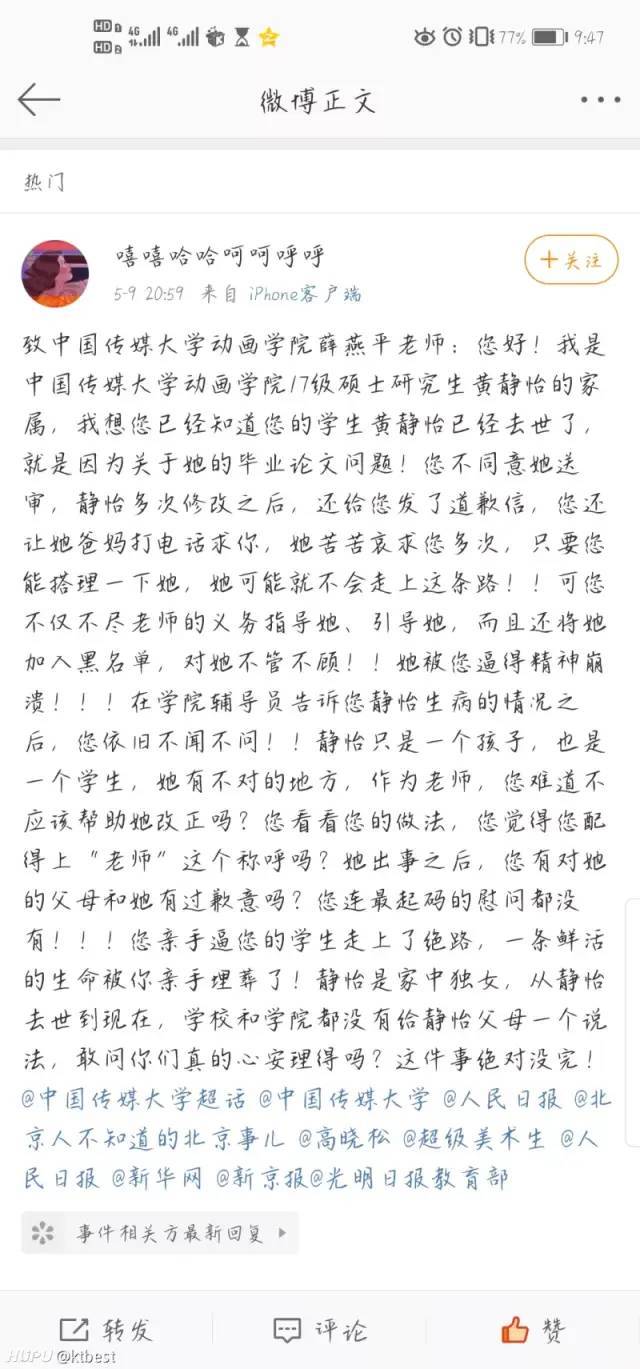 HD 1 4G 4G 77% 9:47
HD 2
微博正文
热门
嘻嘻哈哈呵呵呼呼
+关注
5-9 20:59 来自 iPhone客户端
致中国传媒大学动画学院薛燕平老师：您好！我是
中国传媒大学动画学院17级硕士研究生黄静怡的家
属，我想您已经知道您的学生黄静怡已经去世了，
就是因为关于她的毕业论文问题！您不同意她送
审，静怡多次修改之后，还给您发了道歉信，您还
让她爸妈打电话求你，她苦苦哀求您多次，只要您
能搭理一下她，她可能就不会走上这条路！！可您
不仅不尽老师的义务指导她、引导她，而且还将她
加入黑名单，对她不管不顾！！她被您逼得精神崩
溃！！！在学院辅导员告诉您静怡生病的情况之
后，您依旧不闻不问！！静怡只是一个孩子，也是
一个学生，她有不对的地方，作为老师，您难道不
应该帮助她改正吗？您看看您的做法，您觉得您配
得上“老师”这个称呼吗？她出事之后，您有对她
的父母和她有过歉意吗？您连最起码的慰问都没
有！！！您亲手逼您的学生走上了绝路，一条鲜活
的生命被你亲手埋葬了！静怡是家中独女，从静怡
去世到现在，学校和学院都没有给静怡父母一个说
法，敢问你们真的心安理得吗？这件事绝对没完！
@中国传媒大学超话 @中国传媒大学 @人民日报 @北
京人不知道的北京事儿 @高晓松 @超级美术生 @人
民日报 @新华网 @新京报@光明日报教育部
事件相关方最新回复
转发 评论 赞
HUPU @ktbest